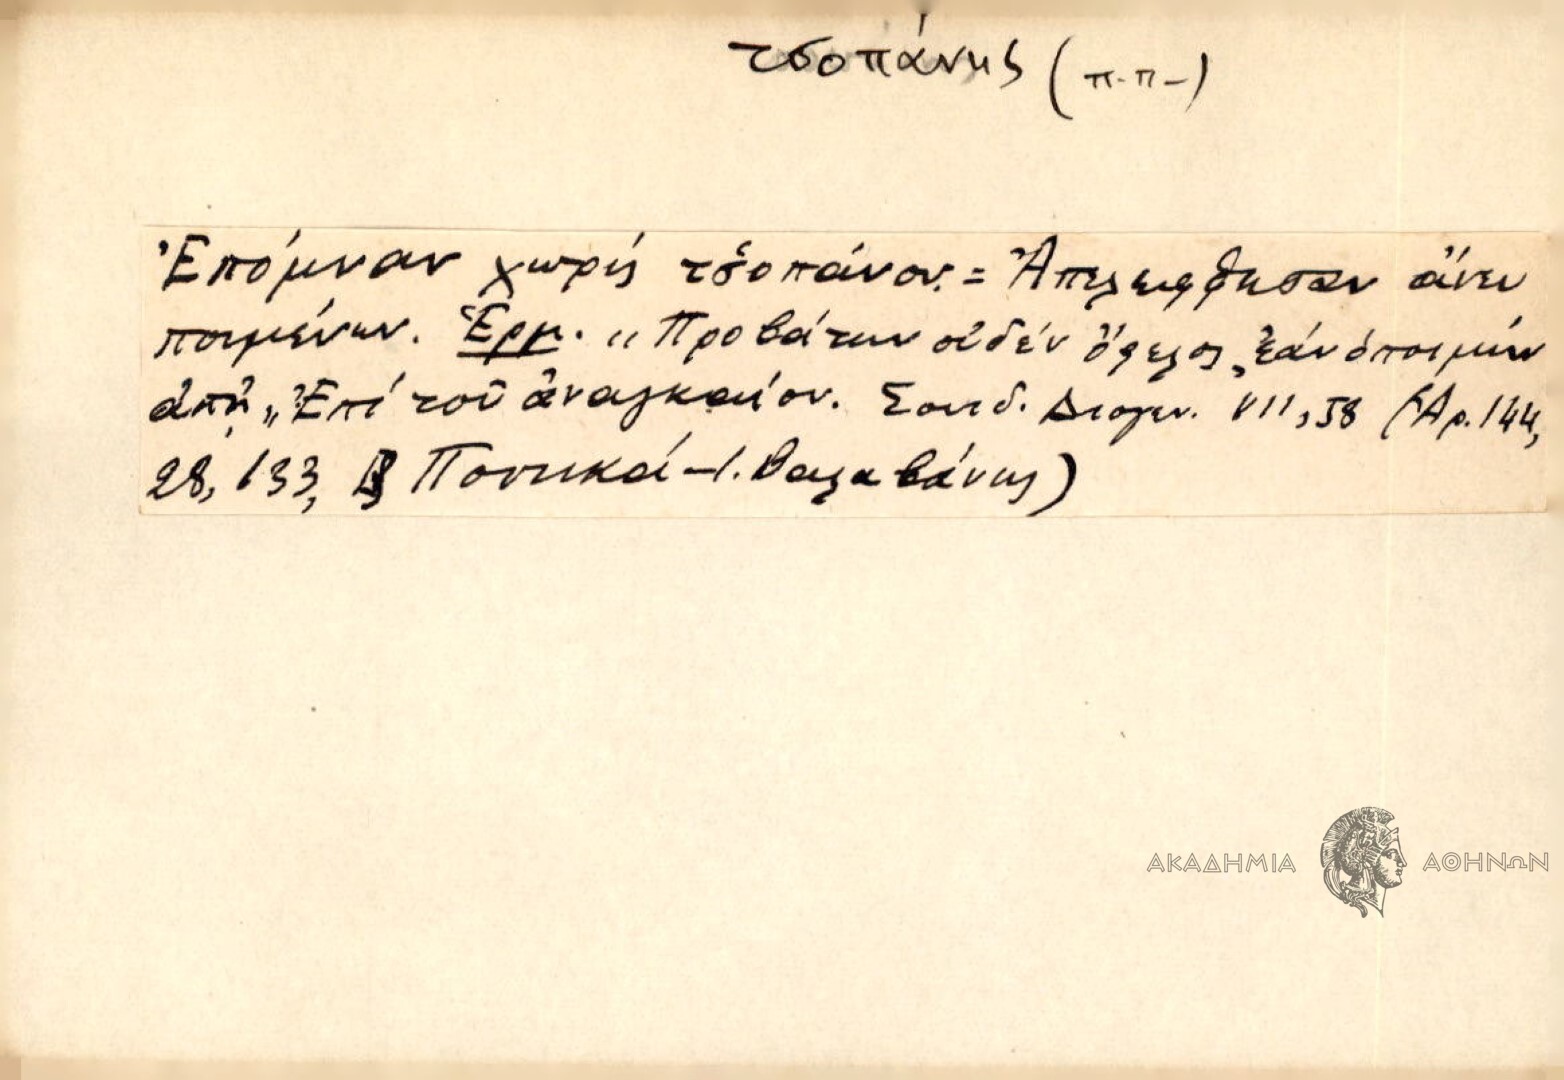 τσοπάνης (π.π-)
Ἐπόμναν χωρίς τσ̌οπάνον. = Ἀπελείφθησαν ἄνευ
ποιμένων. Ἑρμ. "Προβάτων οὐδέν ὄφελος, ἐάν ὁ ποιμήν
ἀπῇ," Ἐπί τοῦ ἀναγκαίου. Σουιδ. Διογεν. VII, 58 (Ἀρ. 144,
28, 133, Ποντικά - Ι. Βαλαβάνης)
ΑΚΑΔΗΜΙΑ ΑΘΗΝΩΝ